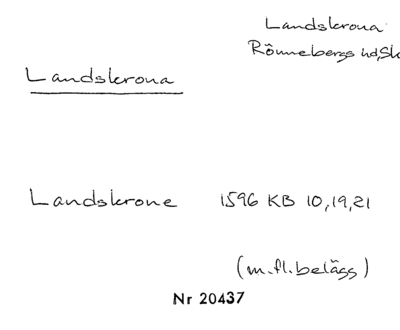 Landskrona
Rönnebergs hd, Sk
Landskrona
Landskrone 1596 KB 10,19,21
(m.fl. belägg)
Nr 20437